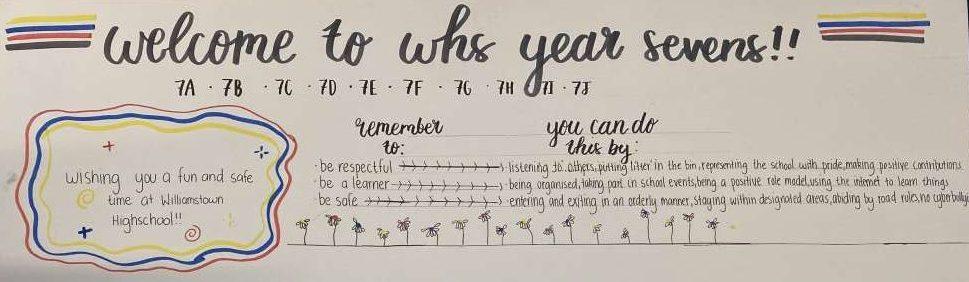 welcome to whs year sevens!!
7A · 7B · 7C · 7D · 7E · 7F · 7G · 7H · 7I · 7J
remember to:
you can do this by:
· be respectful listening to others, putting litter in the bin, representing the school with pride, making positive contributions
· be a learner being organised, taking part in school events, being a positive role model, using the internet to learn things
· be safe entering and exiting in an orderly manner, staying within designated areas, abiding by road rules, no cyberbullyi
Wishing you a fun and safe
time at Williamstown
Highschool!!